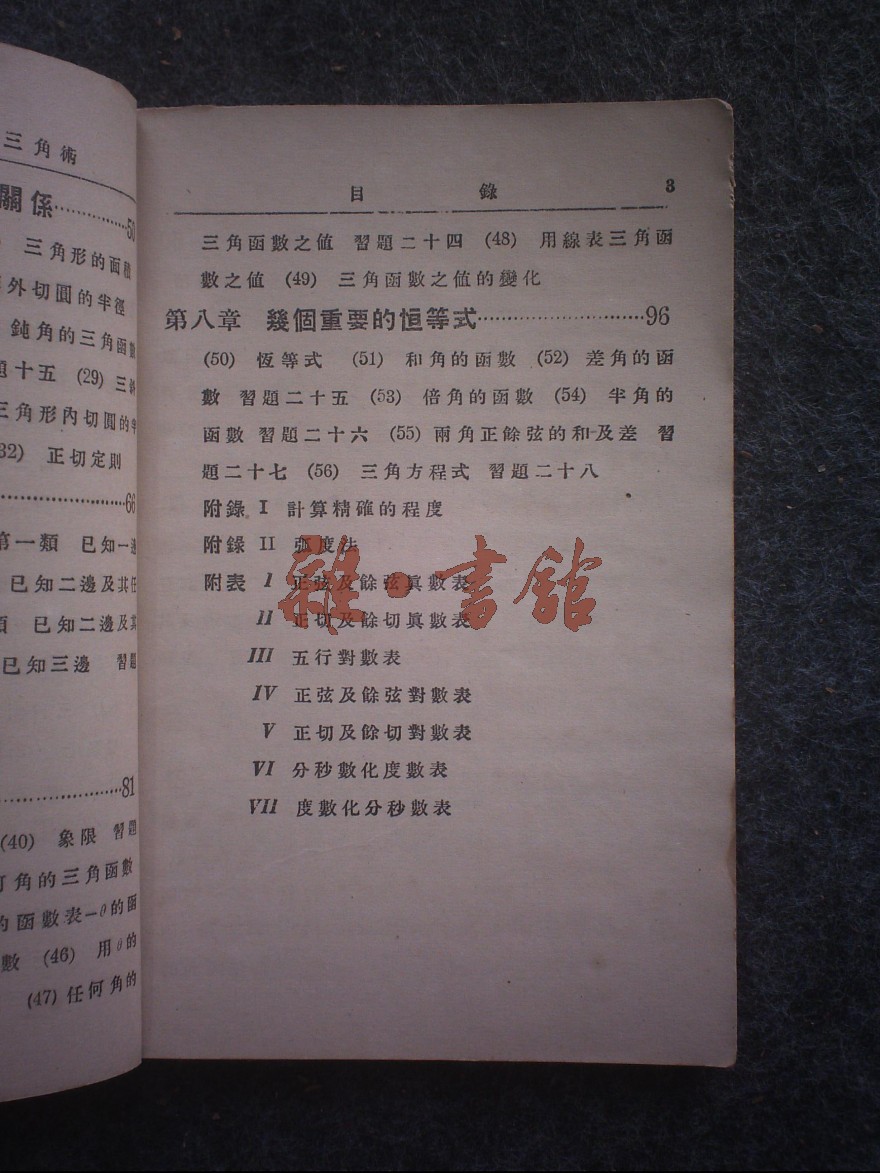 三角術
關係……………50
三角形的面積
外切圓的半徑
鈍角的三角函數
題十五 (29) 三斜
三角形內切圓的半
32) 正切定則
……………66
第一類 已知一邊
已知二邊及其任
已知二邊及其
已知三邊 習題
……………81
(40) 象限 習題
角的三角函數
的函數表-θ的函
數 (46) 用θ的
(47) 任何角的
目錄 3
三角函數之值 習題二十四 (48) 用線表三角函
數之值 (49) 三角函數之值的變化
第八章 幾個重要的恒等式……………96
(50) 恆等式 (51) 和角的函數 (52) 差角的函
數 習題二十五 (53) 倍角的函數 (54) 半角的
函數 習題二十六 (55) 兩角正餘弦的和及差 習
題二十七 (56) 三角方程式 習題二十八
附錄 I 計算精確的程度
附錄 II 弧度法
附表 I 正弦及餘弦眞數表
II 正切及餘切眞數表
III 五行對數表
IV 正弦及餘弦對數表
V 正切及餘切對數表
VI 分秒數化度數表
VII 度數化分秒數表
雜·書館